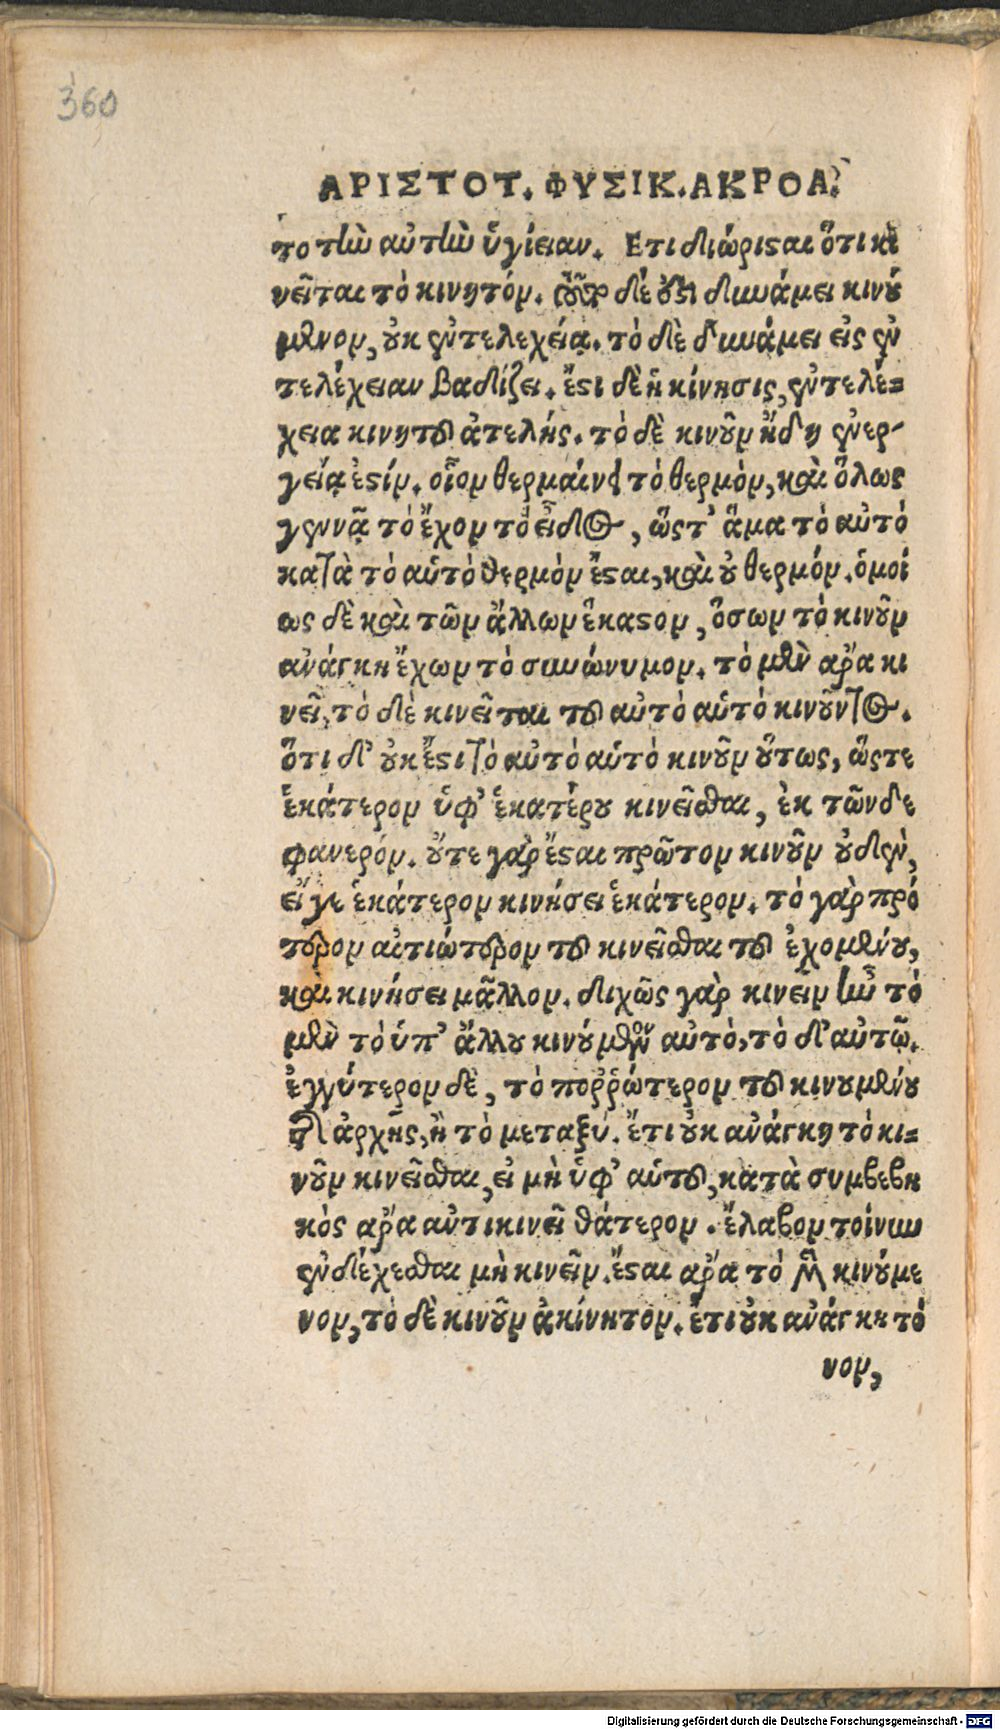 360
ΑΡΙΣΤΟΤ. ΦΥΣΙΚ. ΑΚΡΟΑ.
το τὴν αὐτὴν ὑγίειαν. Ετι διώρισαι ὅτι κι
νεῖται τὸ κινητόν. τοῦτο δέ ὅτι δυνάμει κινού
μενον, οὐκ ἐντελεχείᾳ. τὸ δὲ δυνάμει εἰς ἐν
τελέχειαν βαδίζει. ἔστι δὲ ἡ κίνησις, ἐντελέ=
χεια κινητοῦ ἀτελής. τὸ δὲ κινοῦν ἤδη ἐνερ-
γείᾳ ἐστίν. οἷον θερμαίνει τὸ θερμὸν, καὶ ὅλως
γεννᾷ τὸ ἔχον τὸ εἶδος, ὥστ' ἅμα τὸ αὐτὸ
κατὰ τὸ αὐτὸ θερμὸν ἔσται, καὶ οὐ θερμόν. ὁμοί
ως δὲ καὶ τῶν ἄλλων ἕκαστον, ὅσων τὸ κινοῦν
ἀνάγκη ἔχων τὸ συνώνυμον. τὸ μὲν ἄρα κι
νεῖ, τὸ δὲ κινεῖται τοῦ αὐτὸ αὑτὸ κινοῦντος.
ὅτι δ' οὐκ ἔστι τὸ αὐτὸ αὑτὸ κινοῦν οὕτως, ὥστε
ἑκάτερον ὑφ' ἑκατέρου κινεῖσθαι, ἐκ τῶνδε
φανερόν. οὔτε γὰρ ἔσται πρῶτον κινοῦν οὐδὲν,
εἴ γε ἑκάτερον κινήσει ἑκάτερον. τὸ γὰρ πρό
τερον αἰτιώτερον τοῦ κινεῖσθαι τοῦ ἐχομένου,
καὶ κινήσει μᾶλλον. διχῶς γὰρ κινεῖν ἦν τὸ
μὲν τὸ ὑπ' ἄλλου κινούμενον αὐτὸ, τὸ δ' αὑτῷ.
ἐγγύτερον δὲ, τὸ ποῤῥώτερον τοῦ κινουμένου
τῆς ἀρχῆς, ἢ τὸ μεταξύ. ἔτι οὐκ ἀνάγκη τὸ κι=
νοῦν κινεῖσθαι, εἰ μὴ ὑφ' αὑτοῦ, κατὰ συμβεβη
κὸς ἄρα αὐτικινεῖ θάτερον. ἔλαβον τοίνυν
ἐνδέχεσθαι μὴ κινεῖν. ἔσται ἄρα τὸ μὲν κινούμε
νον, τὸ δὲ κινοῦν ἀκίνητον. ἔτι οὐκ ἀνάγκη τὸ
νον,
Digitalisierung gefördert durch die Deutsche Forschungsgemeinschaft - DFG